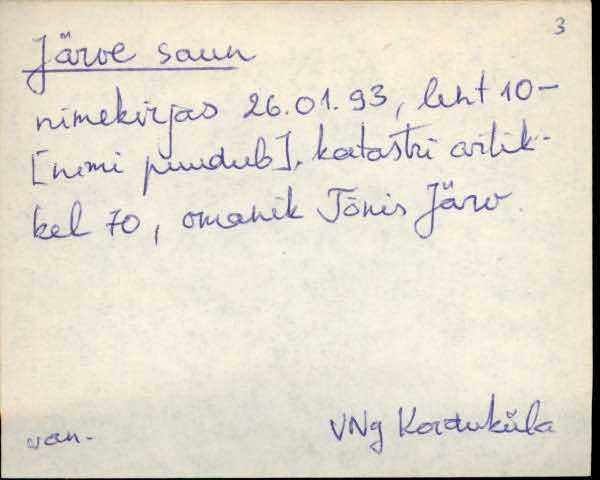 3
Järve saun
nimekirjas 26.01.93, leht 10-
[nimi puudub], katastri artik-
kel 70, omanik Tõnis Järv.
van. VNg Korduküla